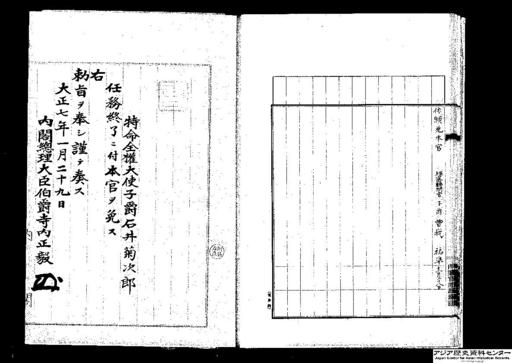 特命全権大使子爵石井菊次郎
任務終了ニ付本官ヲ免ス
右
勅旨ヲ奉シ謹テ奏ス
大正七年一月二十九日
内閣総理大臣伯爵寺内正毅
内閣
アジア歴史資料センター
Japan Center for Asian Historical Records